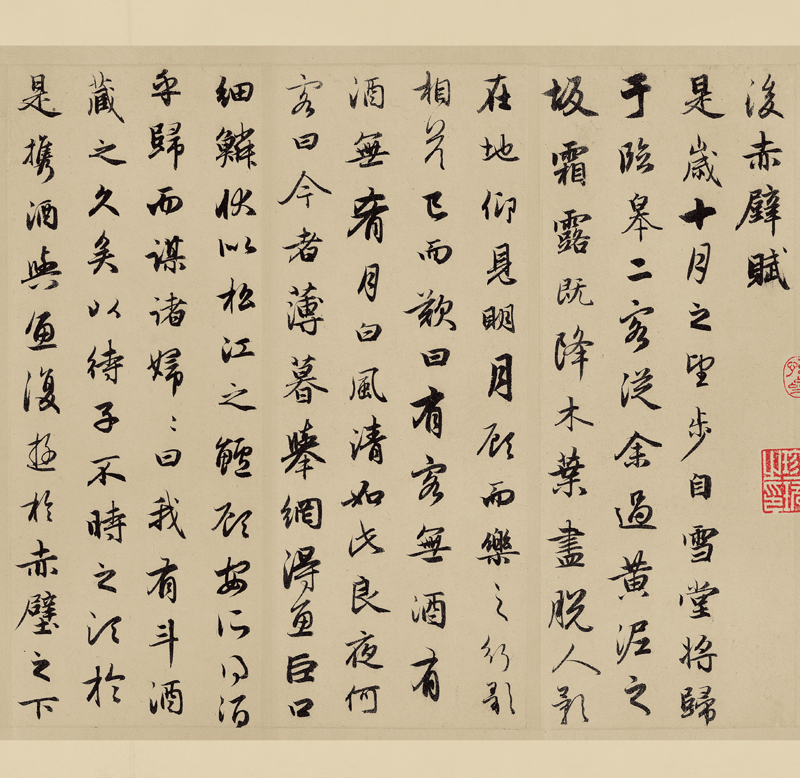 後赤壁賦
是歲十月之望步自雪堂將歸
于臨皋二客從余過黃泥之
坂霜露既降木葉盡脫人影
在地仰見明月顧而樂之行歌
相答已而歎曰有客無酒有
酒無肴月白風清如此良夜何
客曰今者薄暮舉網得魚巨口
細鱗狀似松江之鱸顧安所得酒
乎歸而謀諸婦〻曰我有斗酒
藏之久矣以待子不時之須於
是攜酒與魚復遊於赤壁之下